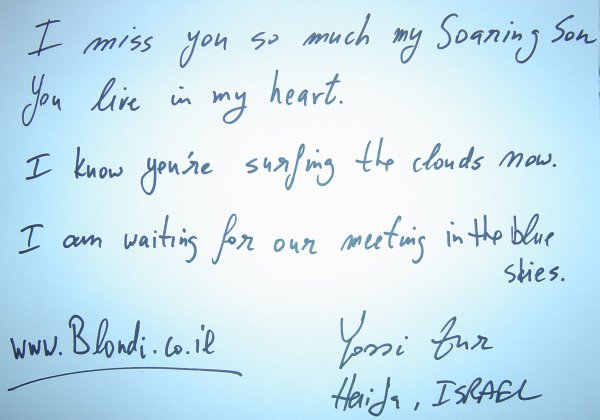 I miss you so much my Soaring Son
You live in my heart.
I know you're surfing the clouds now.
I am waiting for our meeting in the blue
skies.
www.Blondi.co.il
Yossi Zur
Haifa, ISRAEL